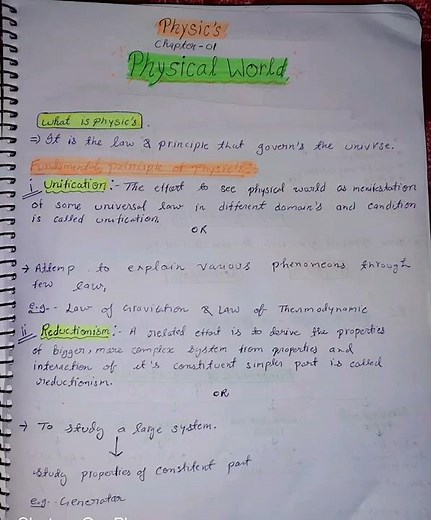 Physic's
Chapter-01
Physical World
What is Physic's.
⇒ It is the law & principle that govern's the univrse.
Fundamental principle of Physic's:-
i Unification:- The effort to see physical world as menifestation
of some universal law in different domain's and candition
is called unification.
OR
→ Attemp to explain various phenomeons through
few law,
e.g.- Law of Gravication & Law of Thermodynamic
ii Reductionism:- A related effort is to derive the properties
of bigger, more complex system from properties and
interaction of it's constituent simpler part is called
reductionism.
OR
→ To study a large system.
↓
study properties of constitent part
e.g- Generator